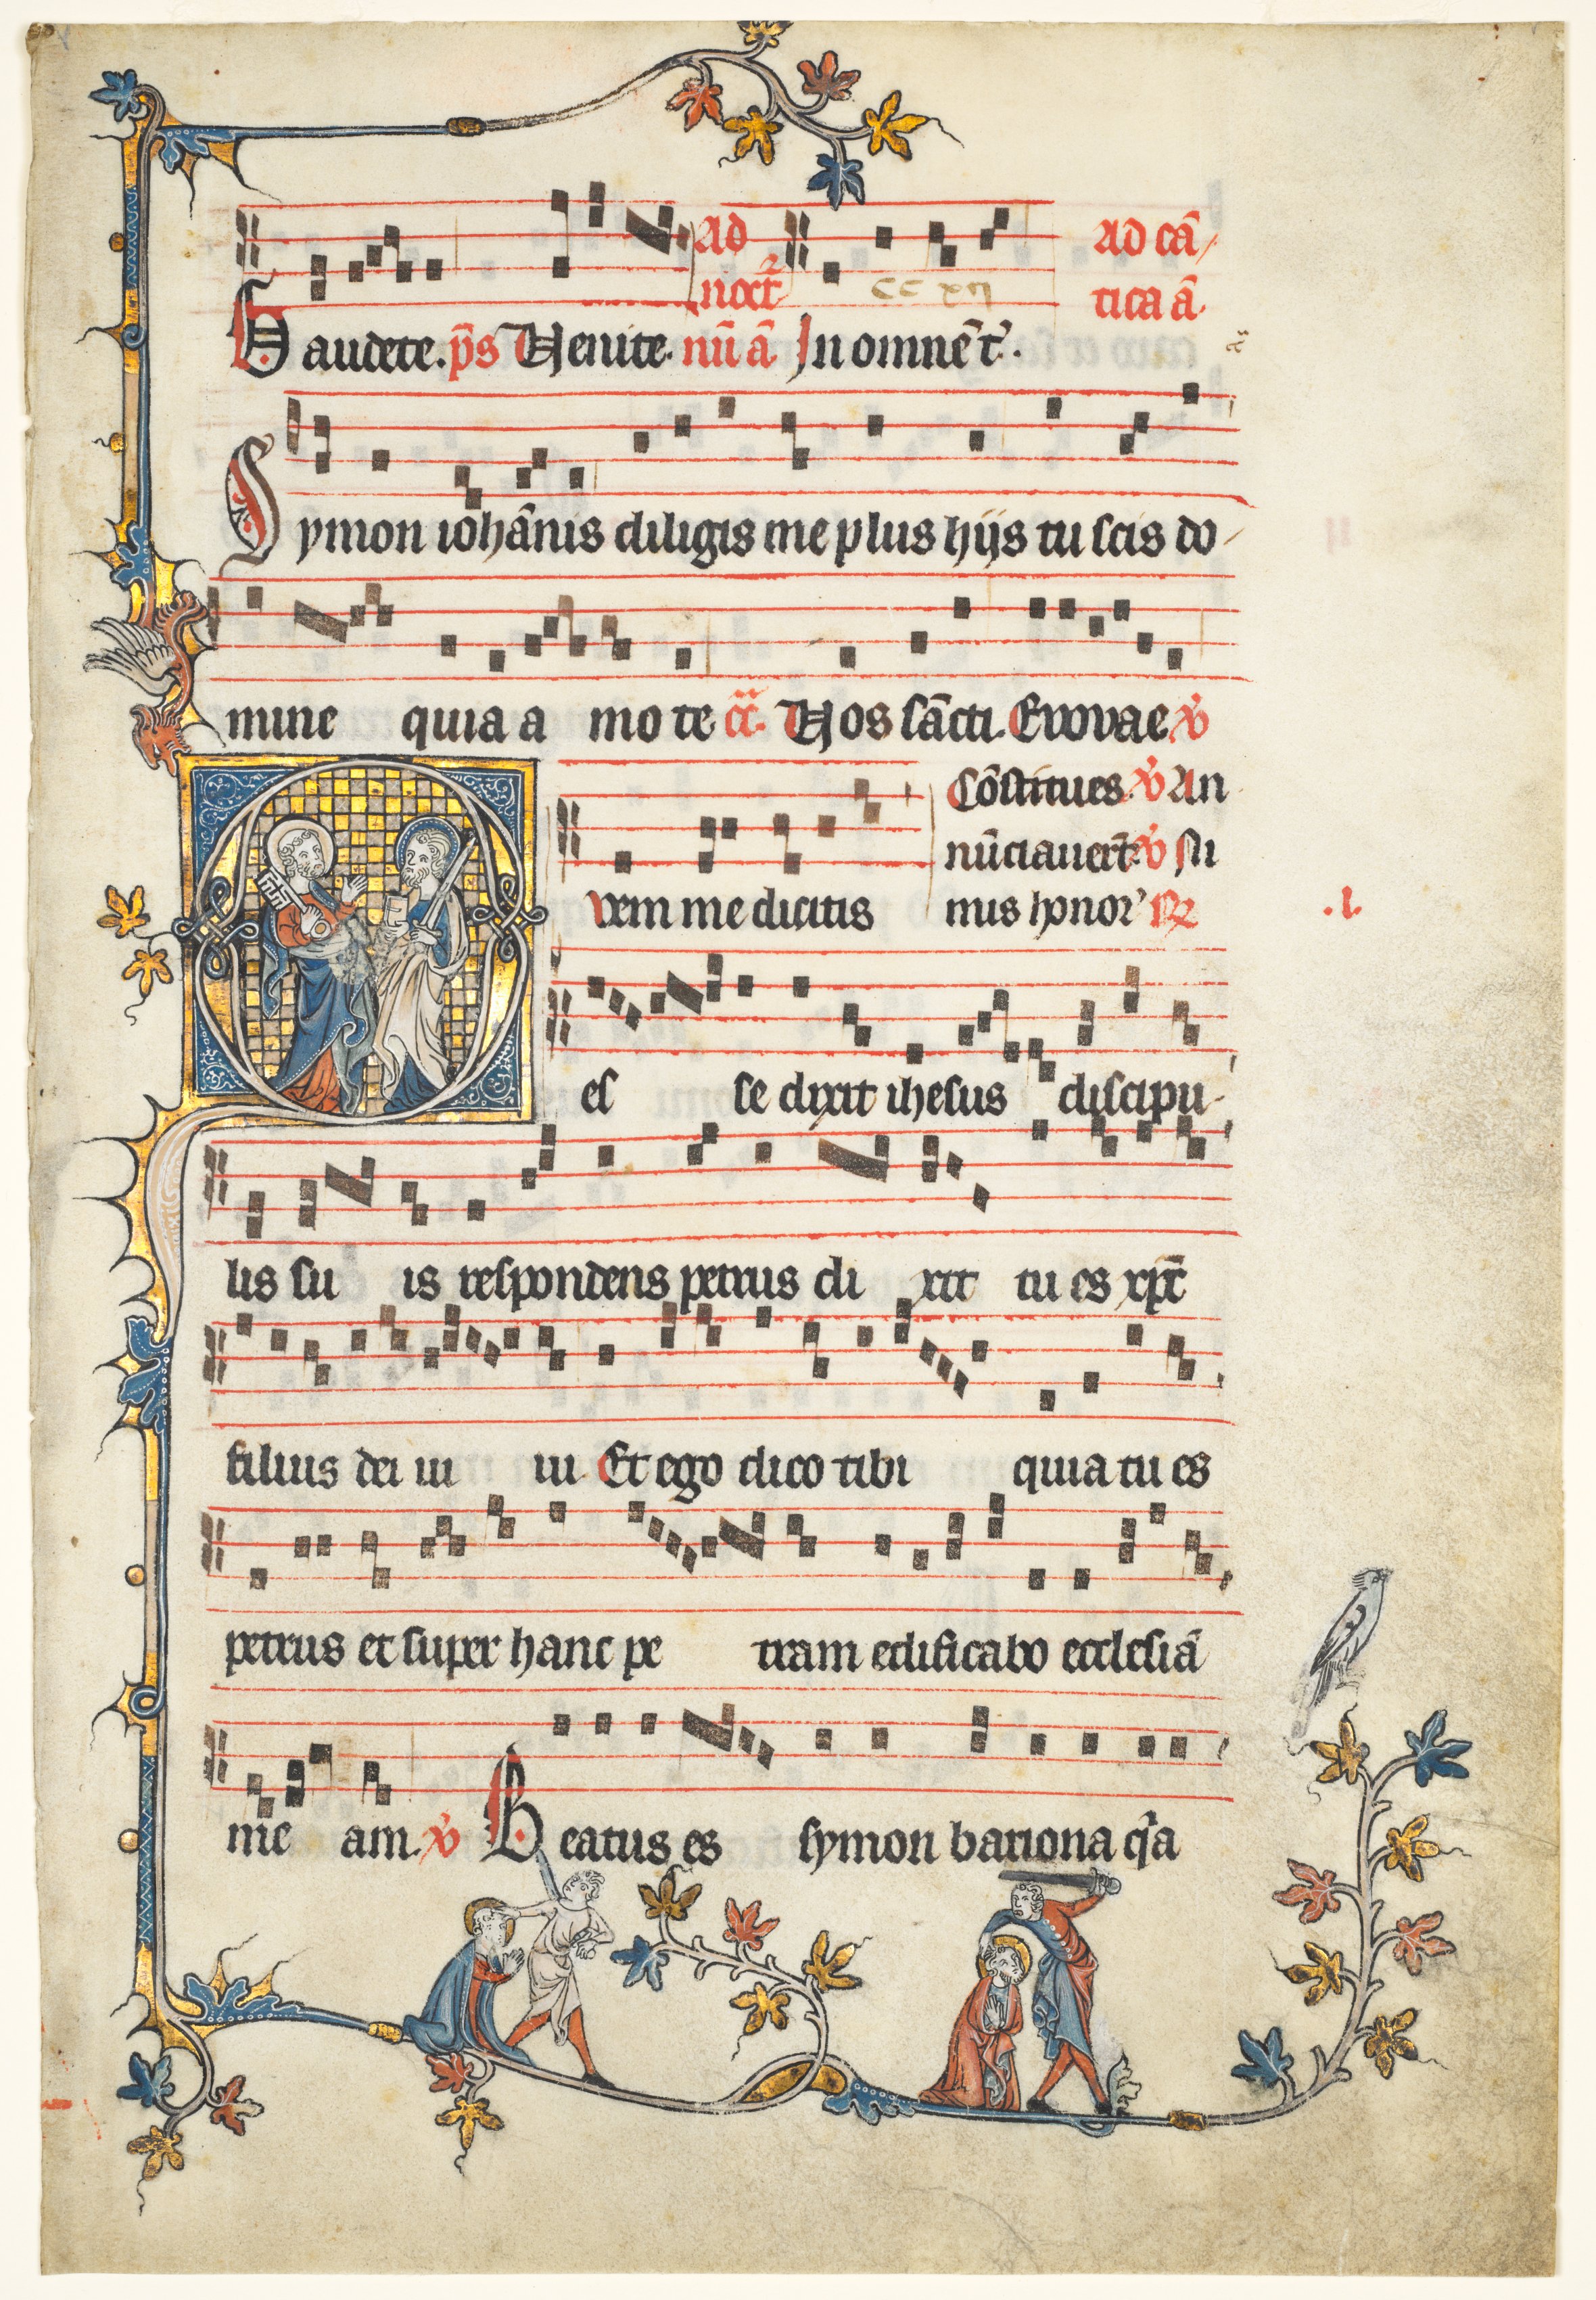 ad
noct2
ad cā
tica ā.
Gaudete. p̄s Venite. nū ā In omnē t̄.
Symon iohānis diligis me plus hijs tu scis do
mine quia a mo te c̄c̄. Vos sācti. Evovae. v̄
Cōstitues. v̄ An
nūciauert̄ v̄ Ni
Qvem me dicitis mis honor' R
.l.
es se dixit ihesus discipu
lis su is respondens petrus di xit tu es xp̄c
filius dei ui ui Et ego dico tibi quia tu es
petrus et super hanc pe tram edificabo ecclesiā
me am. v̄ Beatus es symon bariona q̄a